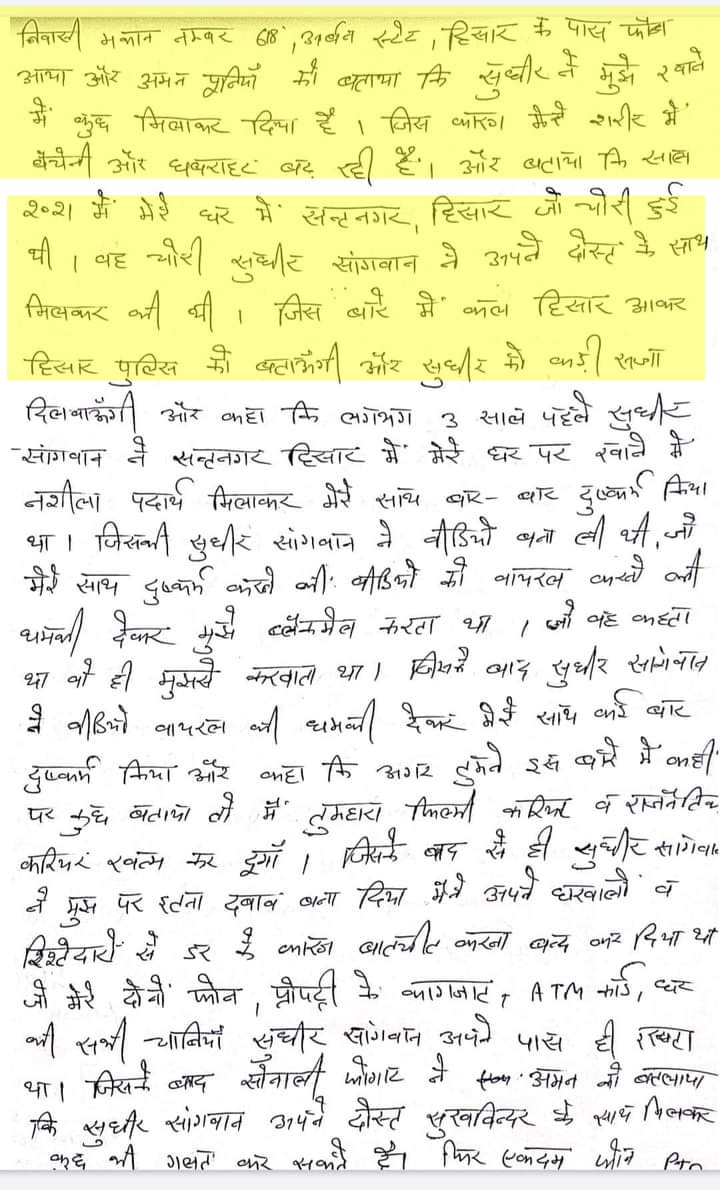 निवासी मकान नम्बर 618, अर्बन स्टेट, हिसार के पास फोन
आया और अमन पूनियाँ को बताया कि सुधीर ने मुझे खाने
में कुछ मिलाकर दिया है । जिस कारण मेरे शरीर में
बेचेनी और घबराहट बढ रही है । और बताया कि साल
2021 में मेरे घर में सन्तनगर, हिसार जो चोरी हुई
थी । वह चोरी सुधीर सांगवान ने अपने दोस्त के साथ
मिलकर की थी । जिस बारे में कल हिसार आकर
हिसार पुलिस को बताऊँगी और सुधीर को कड़ी सजा
दिलवाऊँगी और कहा कि लगभग 3 साल पहले सुधीर
सांगवान ने सन्तनगर हिसार में मेरे घर पर खाने में
नशीला पदार्थ मिलाकर मेरे साथ बार-बार दुष्कर्म किया
था । जिसकी सुधीर सांगवान ने वीडियो बना ली थी, जो
मेरे साथ दुष्कर्म करने की वीडियो को वायरल करने की
धमकी देकर मुझे ब्लैकमेल करता था । जो वह कहता
था वो ही मुझसे करवाता था । जिसके बाद सुधीर सांगवान
ने वीडियो वायरल की धमकी देकर मेरे साथ कई बार
दुष्कर्म किया और कहा कि अगर तुमने इस बारे में कहीं
पर कुछ बताया तो मैं तुम्हारा फिल्मी करियर व राजनैतिक
करियर खत्म कर दूगाँ । जिसके बाद से ही सुधीर सांगवान
ने मुझ पर इतना दवाब बना दिया मैने अपने घरवालो व
रिश्तेदारो से डर के कारण बातचीत करना बन्द कर दिया था
जो मेरे दोनों फोन, प्रोपर्टी के कागजात, ATM कार्ड, घर
की सभी चाबियाँ सुधीर सांगवान अपने पास ही रखता
था । जिसके बाद सोनाली फोगाट ने अमन को बतलाया
कि सुधीर सांगवान अपने दोस्त सुखविन्दर के साथ मिलकर
कुछ भी गलत कर सकते है । फिर एकदम फोन PTO